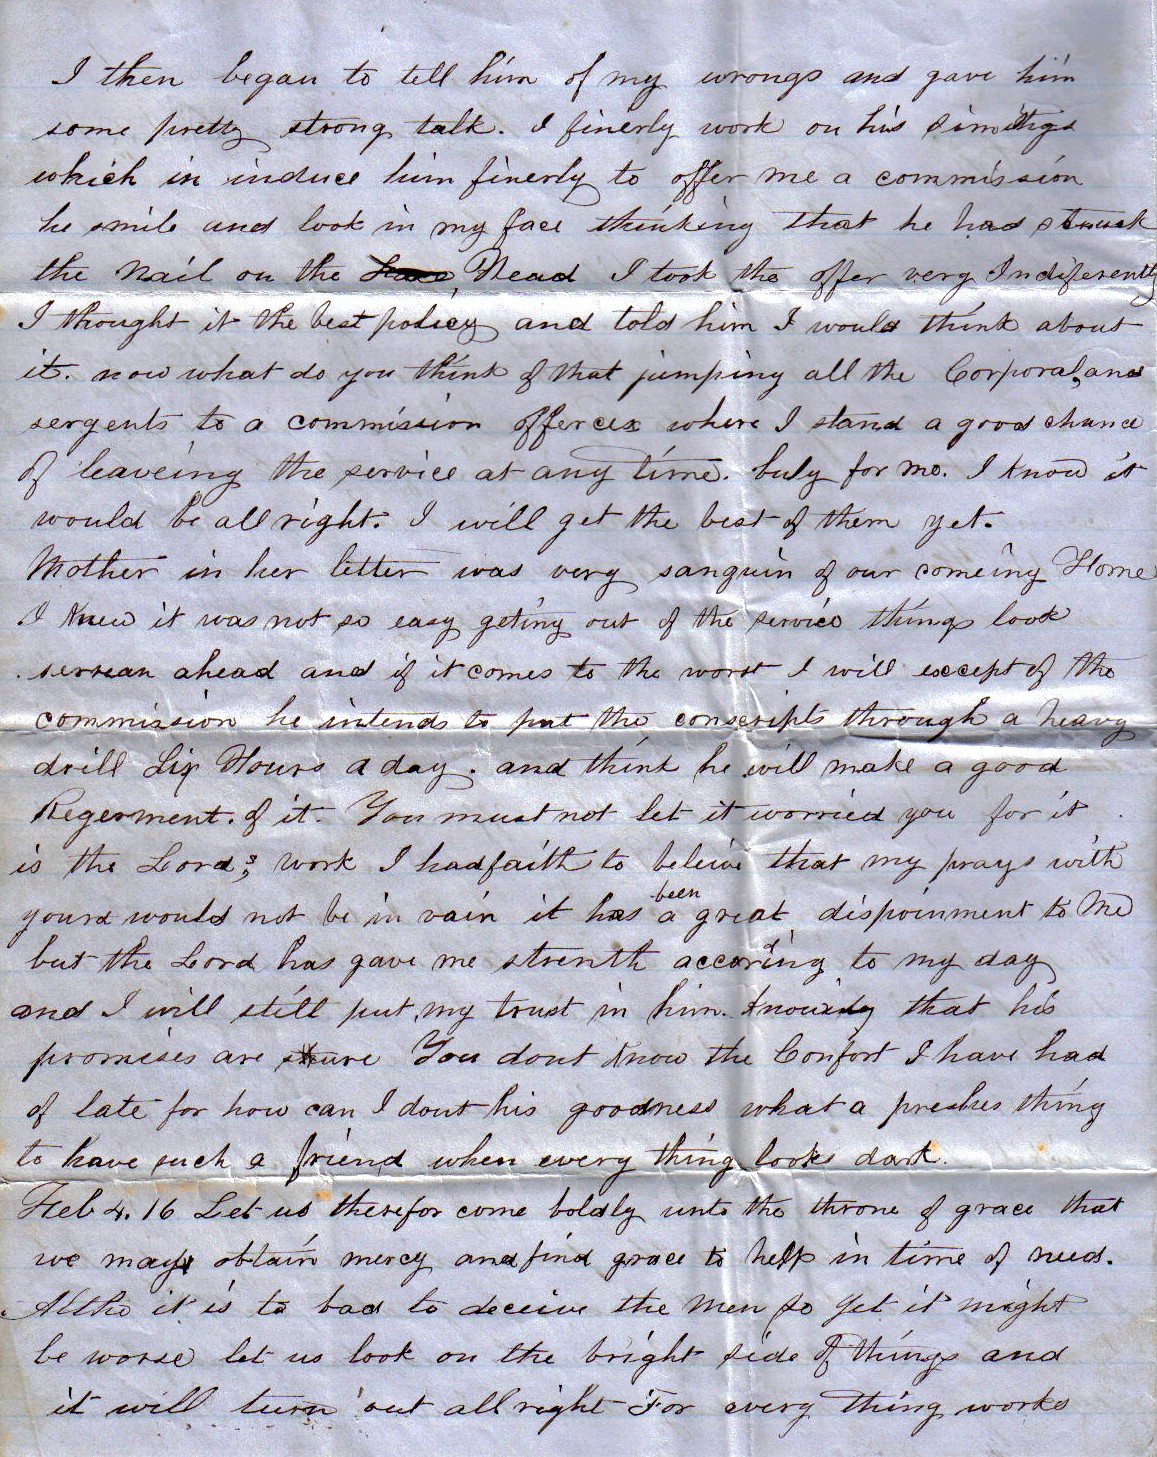 I then began to tell him of my wrongs and gave him
some pretty strong talk. I finerly work on his
which in induce him finerly to offer me a commission
he smile and look in my face thinking that he had struck
the Nail on the Head I took the offer very Indiferently
I thought it the best policy and told him I would think about
it. now what do you think of that jumping all the Corporal, and
sergents to a commission offercer where I stand a good chance
of leaveing the service at any time. buly for me. I know it
would be all right. I will get the best of them yet.
Mother in her letter was very sanguin of our comeing Home
I knew it was not so easy geting out of the service things look
ahead and if it comes to the worst I will except of the
commission he intends to put the conscripts through a heavy
drill Six Hours a day. and think he will make a good
Regerment. of it. You must not let it worried you for it
is the Lord,s work I had faith to beleive that my prays with
yours would not be in vain it has been a great dispoinment to Me
but the Lord has gave me strenth accoring to my day
and I will still put my trust in him. knowing that his
promises are sure You dont know the Confort I have had
of late for how can I dout his goodness what a presbus thing
to have such a friend when every thing looks dark.
Heb 4. 16 Let us therefor come boldly unto the throne of grace that
we may obtain mercy and find grace to help in time of need.
Altho it is to bad to deceive the men so yet it might
be worse let us look on the bright side of things and
it will turn out all right For every thing works